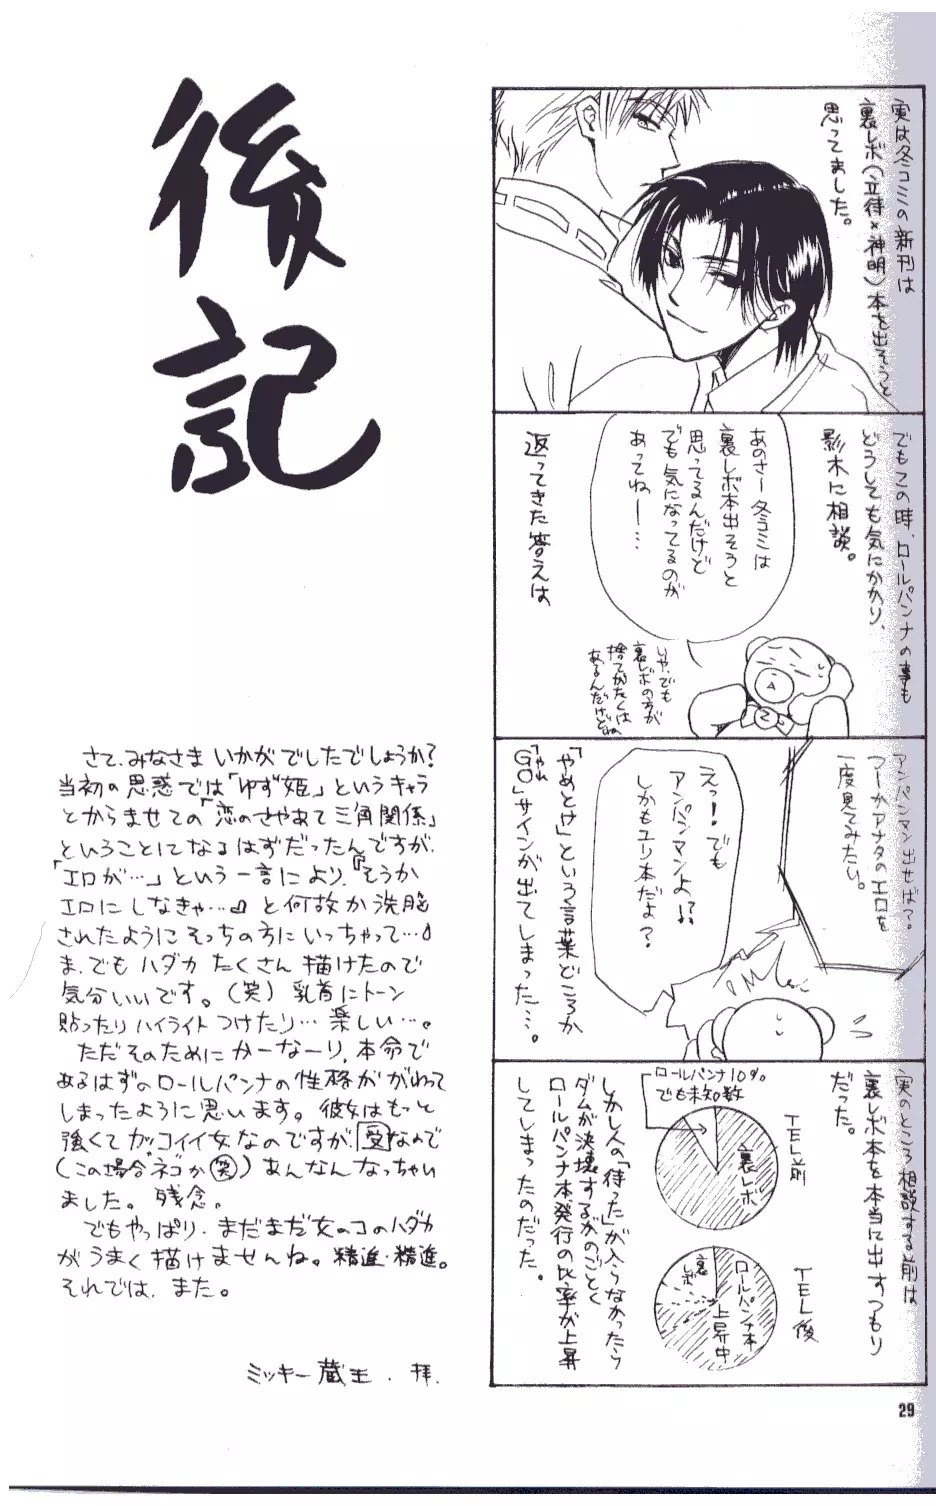 後記
実は冬コミの新刊は
裏レボ(立待×神明)本を出そうと
思ってました。
でもこの時、ロールパンナの事も
どうしても気にかかり、
影木に相談。
あのさー冬コミは
裏レボ本出そうと
思ってるんだけど
でも気になってるのが
あってねー…
いや、でも
裏レボの方が
捨てがたくは
あるんだけどね
返ってきた答えは
アンパンマン出せば?
つーかアナタのエロを
一度見てみたい。
えっ!でも
アンパンマンよ!?
しかもユリ本だよ?
「やめとけ」という言葉どころか
「やれ」
GOサインが出てしまった…。
実のところ相談する前は
裏レボ本を本当に出すつもり
だった。
TEL前
ロールパンナ10%
でも未知数
裏レボ
TEL後
ロールパンナ本
上昇中
裏レボ
しかし人の「待った」が入らなかったら
ダムが決壊するかのごとく
ロールパンナ本発行の比率が上昇
してしまったのだった。
さて、みなさま いかがでしたでしょうか?
当初の思惑では「ゆず姫」というキャラ
とからませての「恋のさやあて三角関係」
ということになるはずだったんですが、
「エロが…」という一言により、「そうか
エロにしなきゃ…」と何故か洗脳
されたようにそっちの方にいっちゃって…
ま、でもハダカたくさん描けたので
気分いいです。(笑) 乳首にトーン
貼ったりハイライトつけたり… 楽しい…。
ただそのためにかーなーり、本命で
あるはずのロールパンナの性格がかわって
しまったように思います。彼女はもっと
強くてカッコイイ女なのですが、受なので
(この場合ネコか(笑)) あんなんなっちゃい
ました。残念。
でもやっぱり、まだまだ女のコのハダカ
がうまく描けませんね。精進・精進。
それでは、また。
ミッキー蔵王. 拝.
29